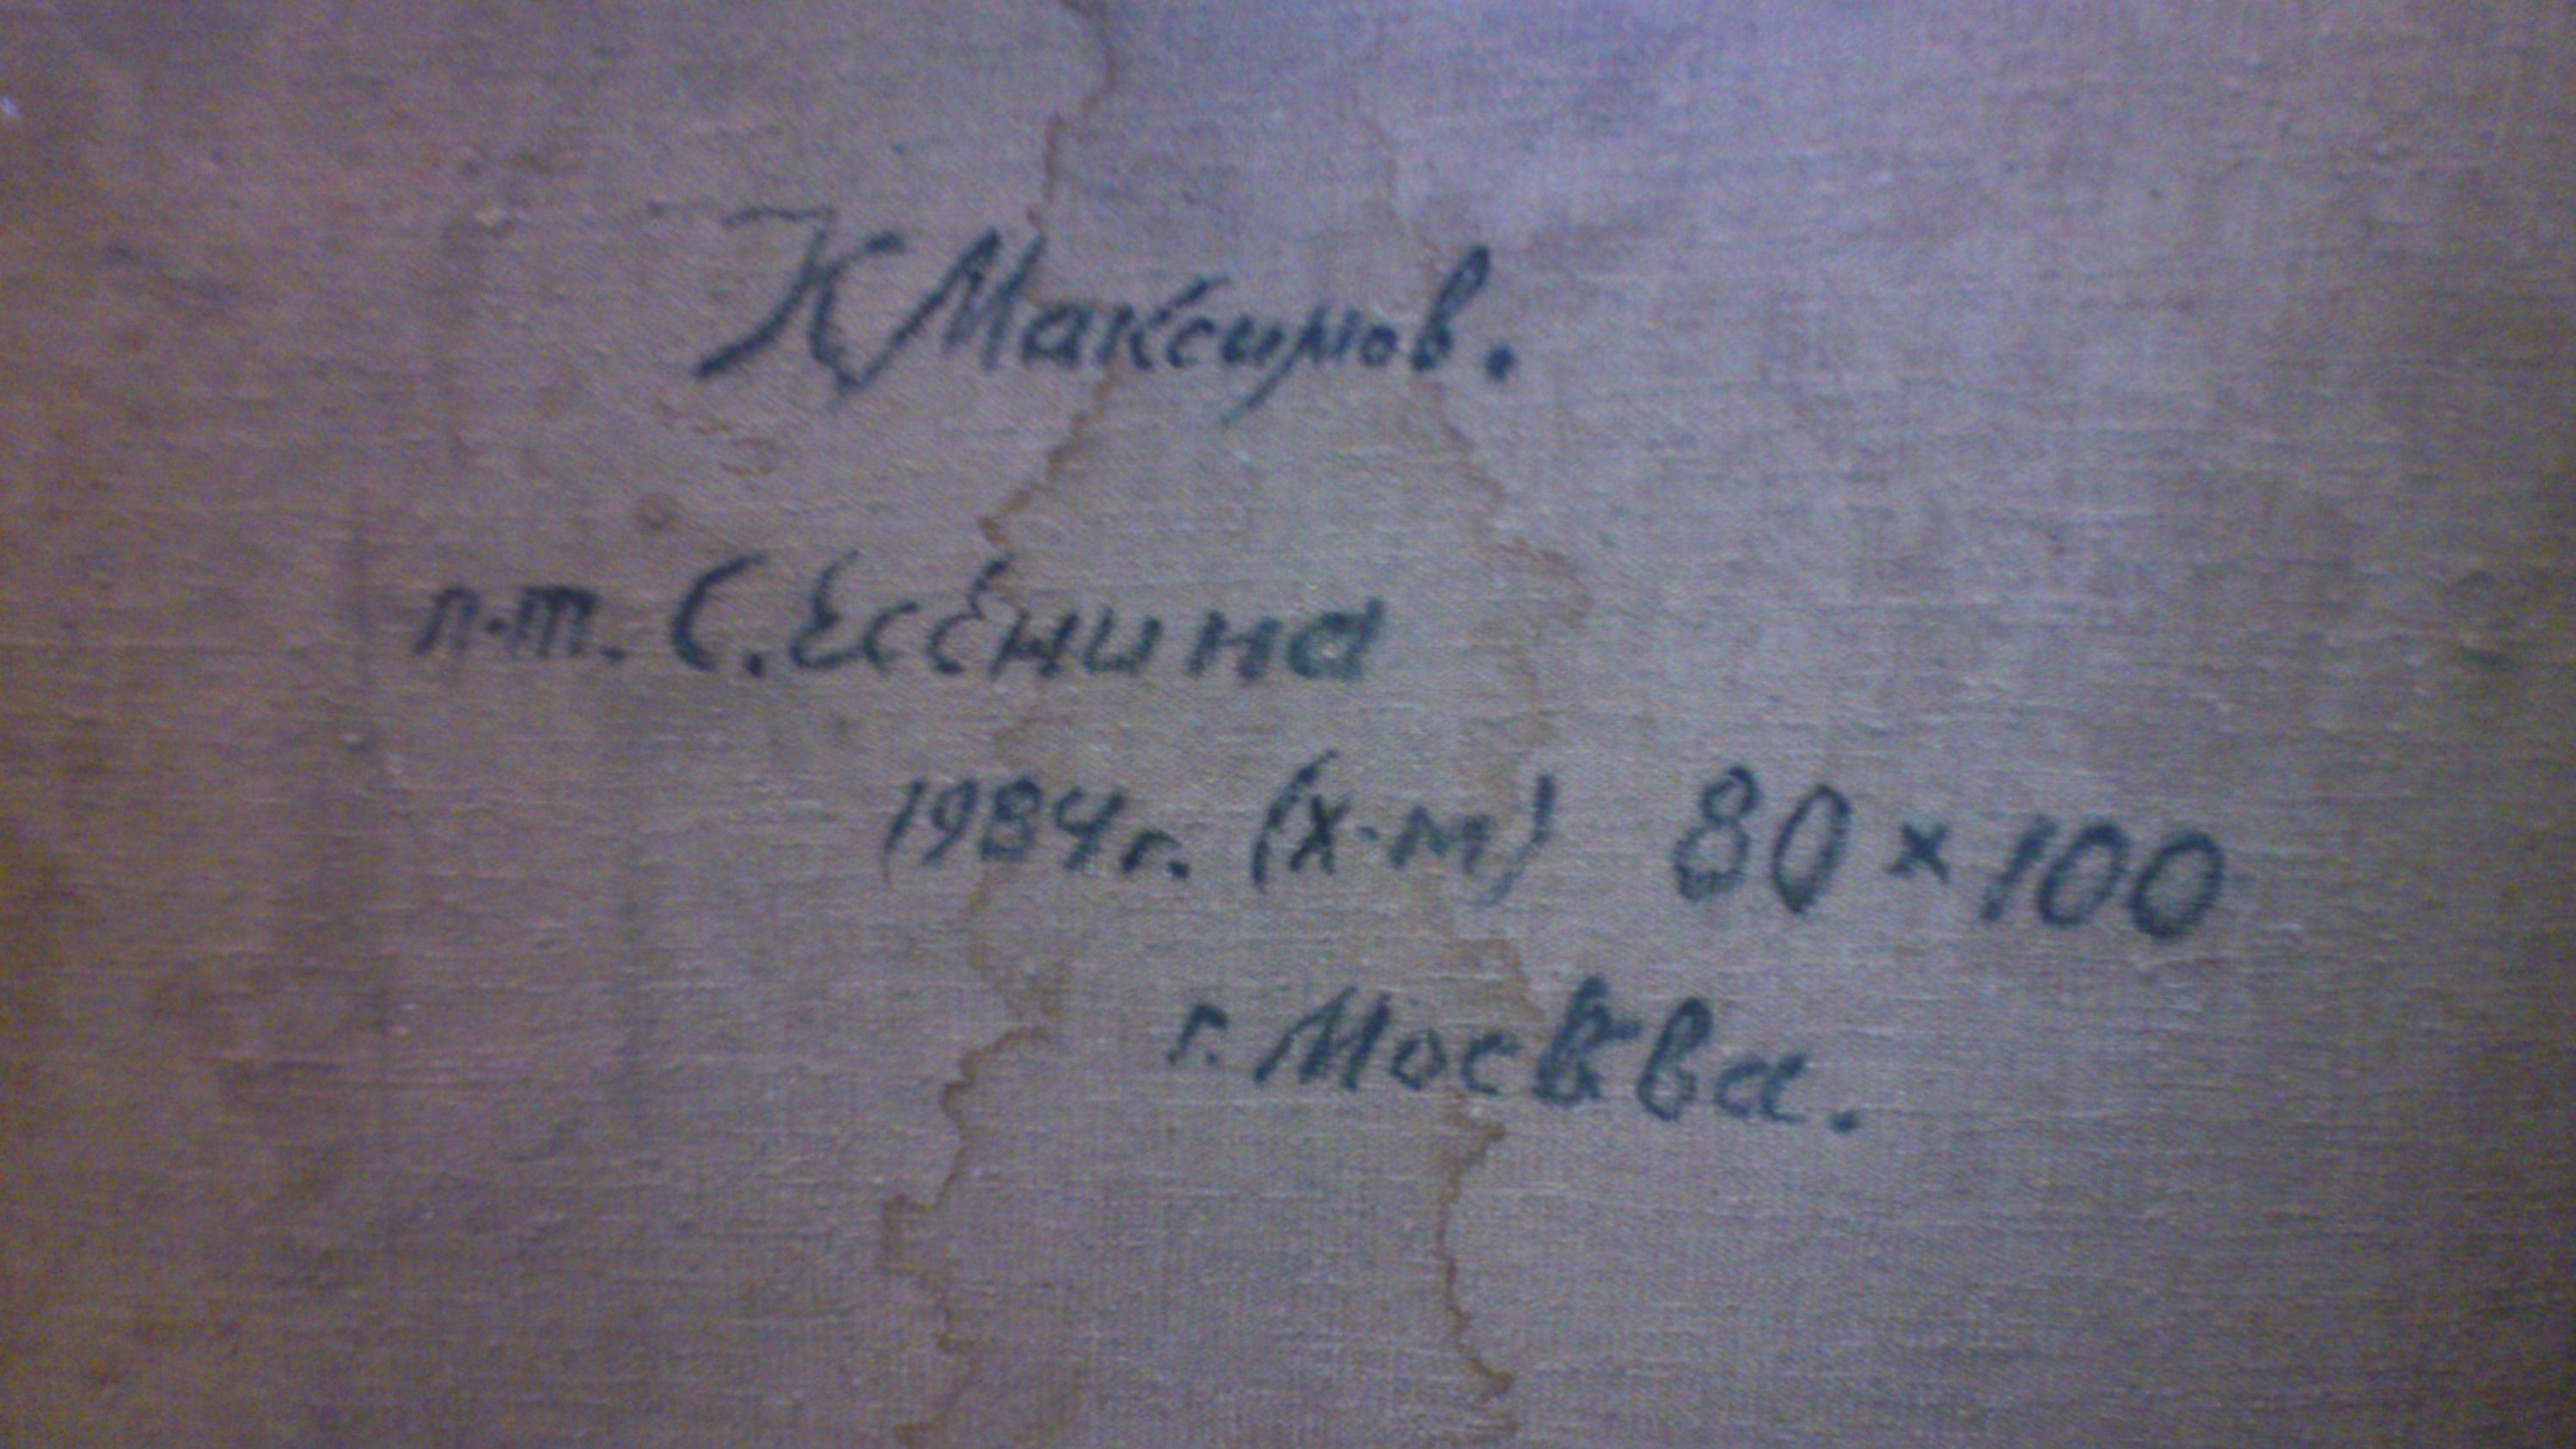 К Максимов.
п-т. С. Есенина
1984г. (х-м) 80 × 100
г. Москва.